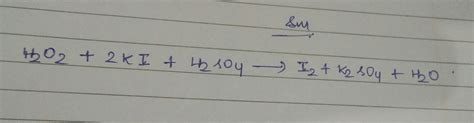 Sol
H2O2 + 2KI + H2SO4 ⟶ I2 + K2SO4 + H2O